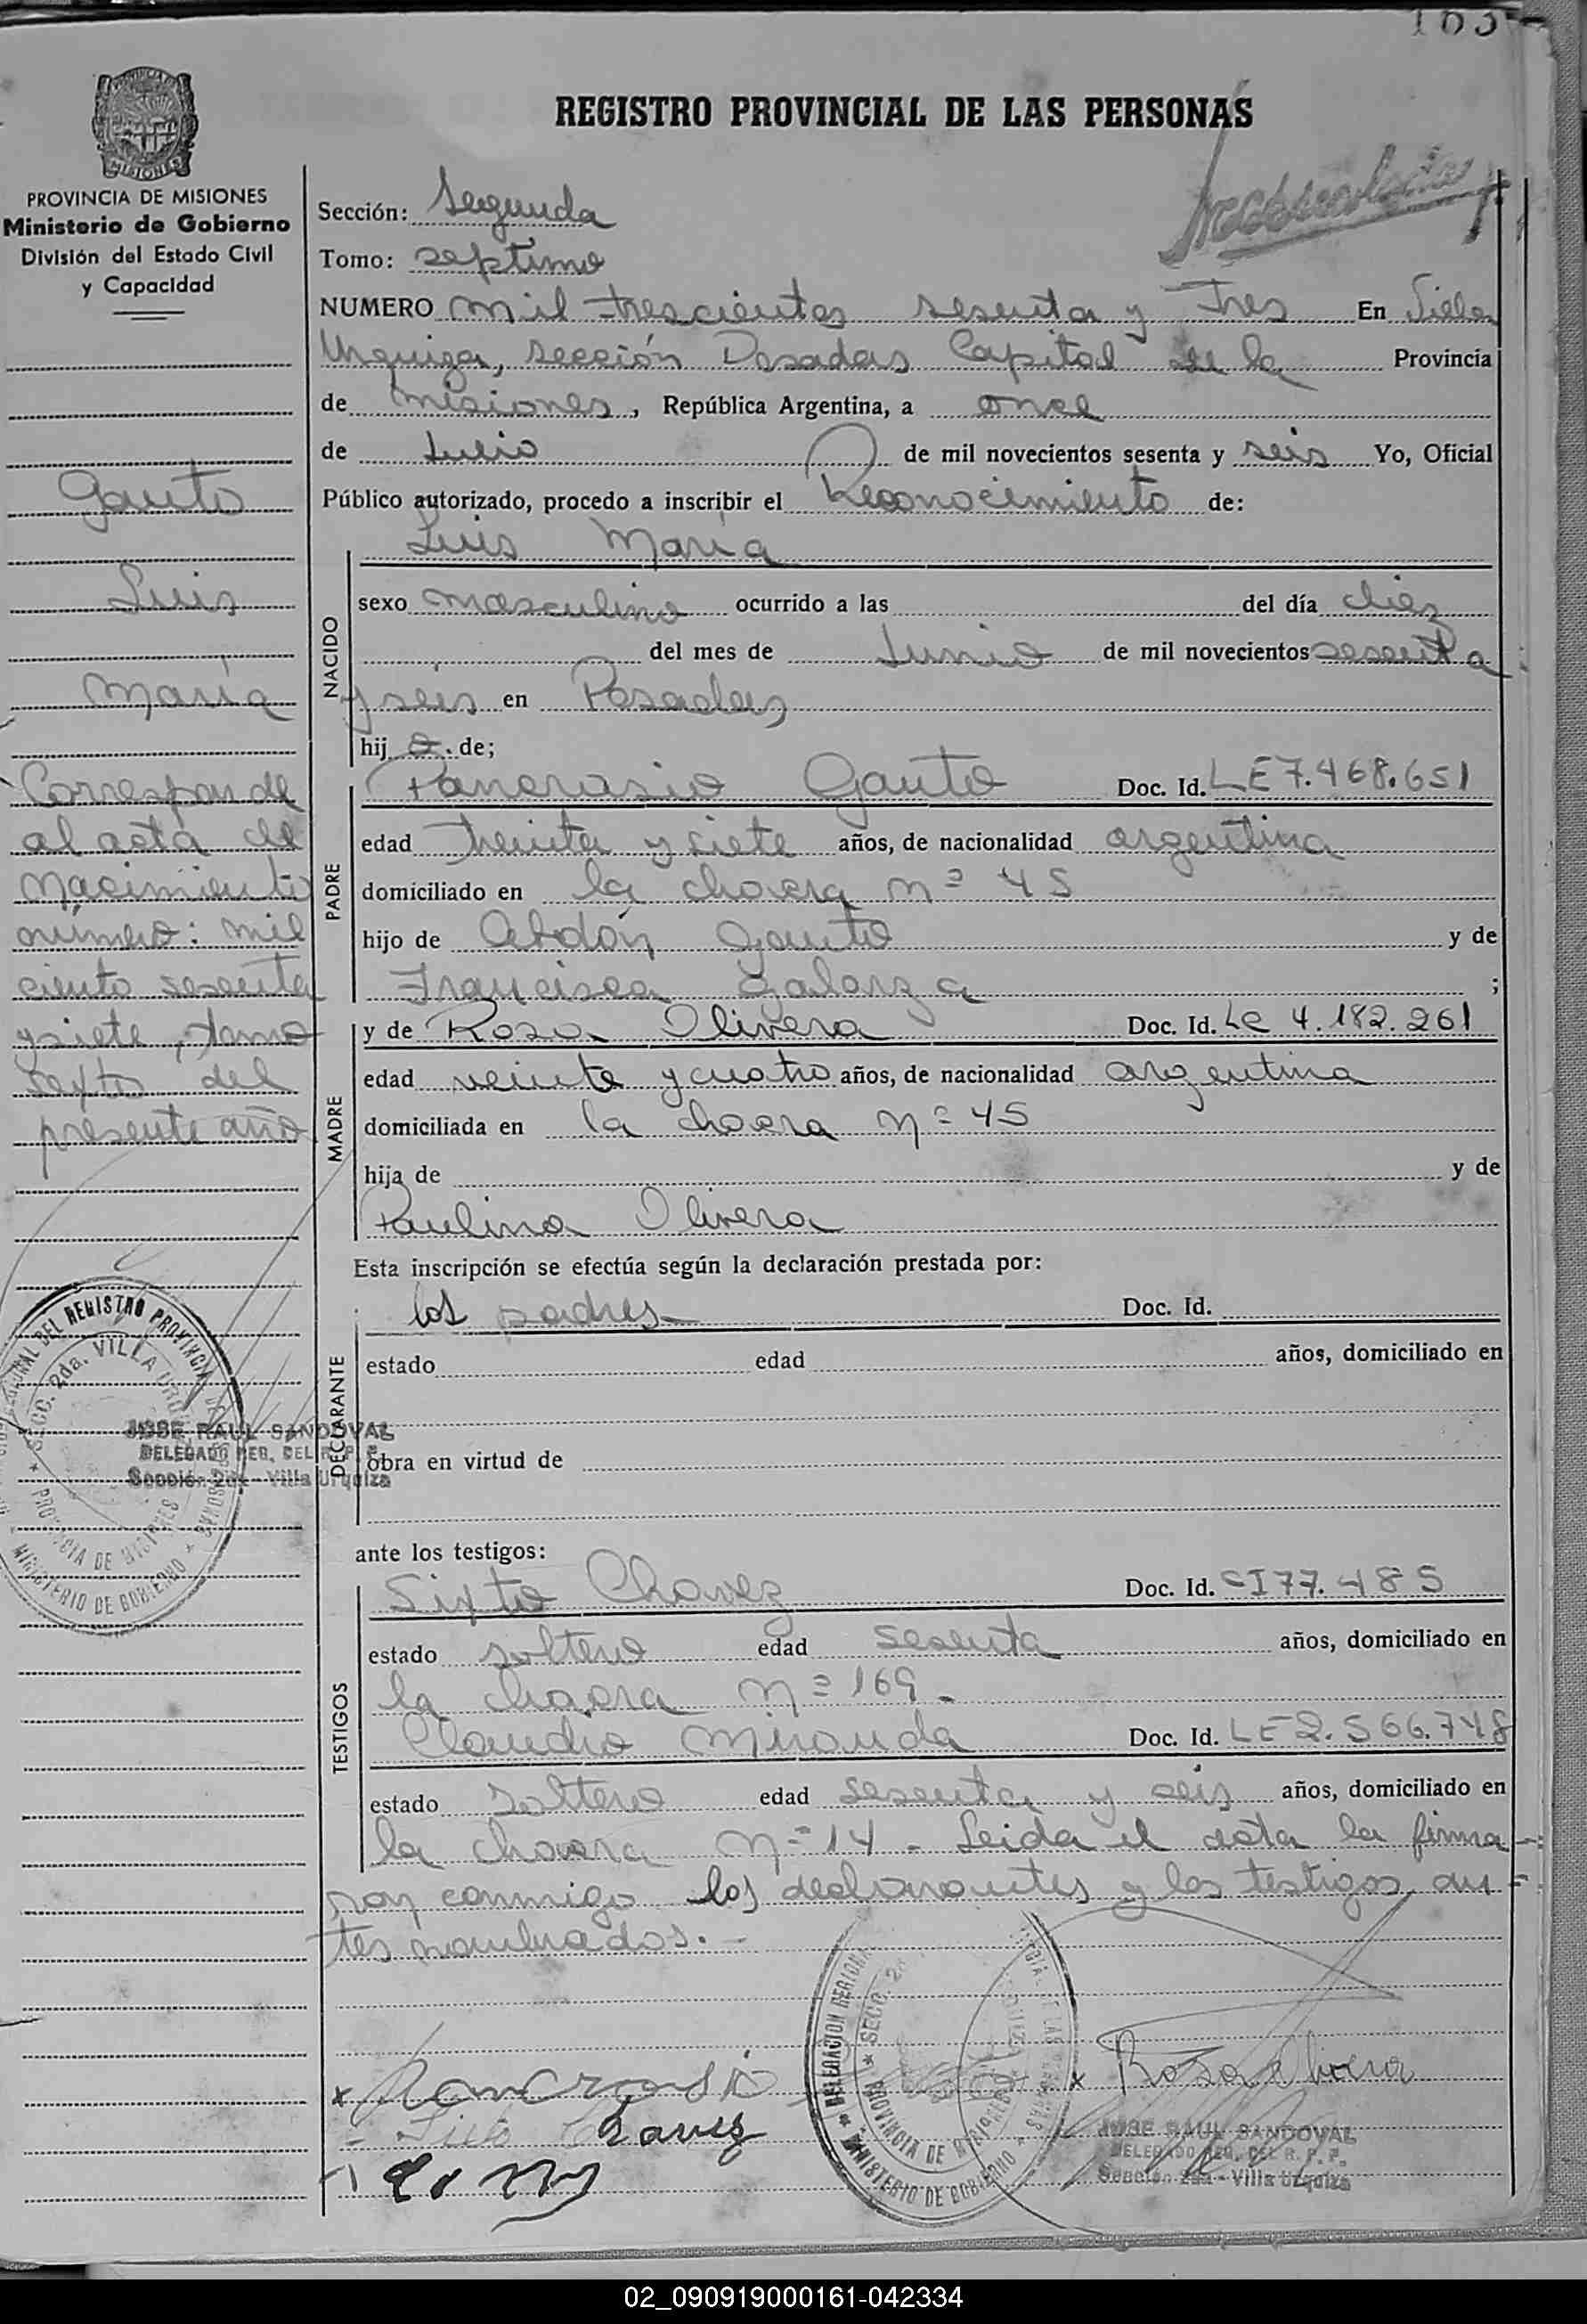 163
REGISTRO PROVINCIAL DE LAS PERSONAS
PROVINCIA DE MISIONES
Ministerio de Gobierno
División del Estado Civil
y Capacidad
Gauto
Luis
María
Corresponde
al acta de
Nacimiento
número: mil
ciento sesenta
y siete, tomo
sexto del
presente año
Sección: Segunda
Tomo: septimo
NUMERO mil trescientos sesenta y Tres En Villa
Urquiza, sección Posadas Capital de la Provincia
de Misiones, República Argentina, a once
de Julio de mil novecientos sesenta y seis Yo, Oficial
Público autorizado, procedo a inscribir el Reconocimiento de:
Luis María
NACIDO
sexo masculino ocurrido a las del día diez
del mes de Junio de mil novecientos sesenta
y seis en Posadas
hijo de;
PADRE
Pancrasio Gauto Doc. Id. LE 7.468.651
edad treinta y siete años, de nacionalidad argentina
domiciliado en la chacra nº 45
hijo de Abdón Gauto y de
Francisca Galarza ;
MADRE
y de Rosa Olivera Doc. Id. Lc 4.182.261
edad veinte y cuatro años, de nacionalidad argentina
domiciliada en la chacra nº 45
hija de y de
Paulina Olivera
Esta inscripción se efectúa según la declaración prestada por:
DECLARANTE
los padres Doc. Id.
estado edad años, domiciliado en
obra en virtud de
ante los testigos:
TESTIGOS
Sixto Chavez Doc. Id. CI 77.485
estado soltero edad sesenta años, domiciliado en
la chacra nº 169.
Claudio Miranda Doc. Id. LE 2.566.748
estado soltero edad sesenta y seis años, domiciliado en
la chacra nº 14 - Leida el acta la firma-
ron conmigo los declarantes y los testigos an-
tes nombrados.-
JOSE RAUL SANDOVAL
DELEGADO REG. DEL R. P. P.
Sección 2da - Villa Urquiza
x Pancrasio
x Rosa Olivera
Chavez
JOSE RAUL SANDOVAL
DELEGADO REG. DEL R. P. P.
Sección 2da - Villa Urquiza
02_090919000161-042334